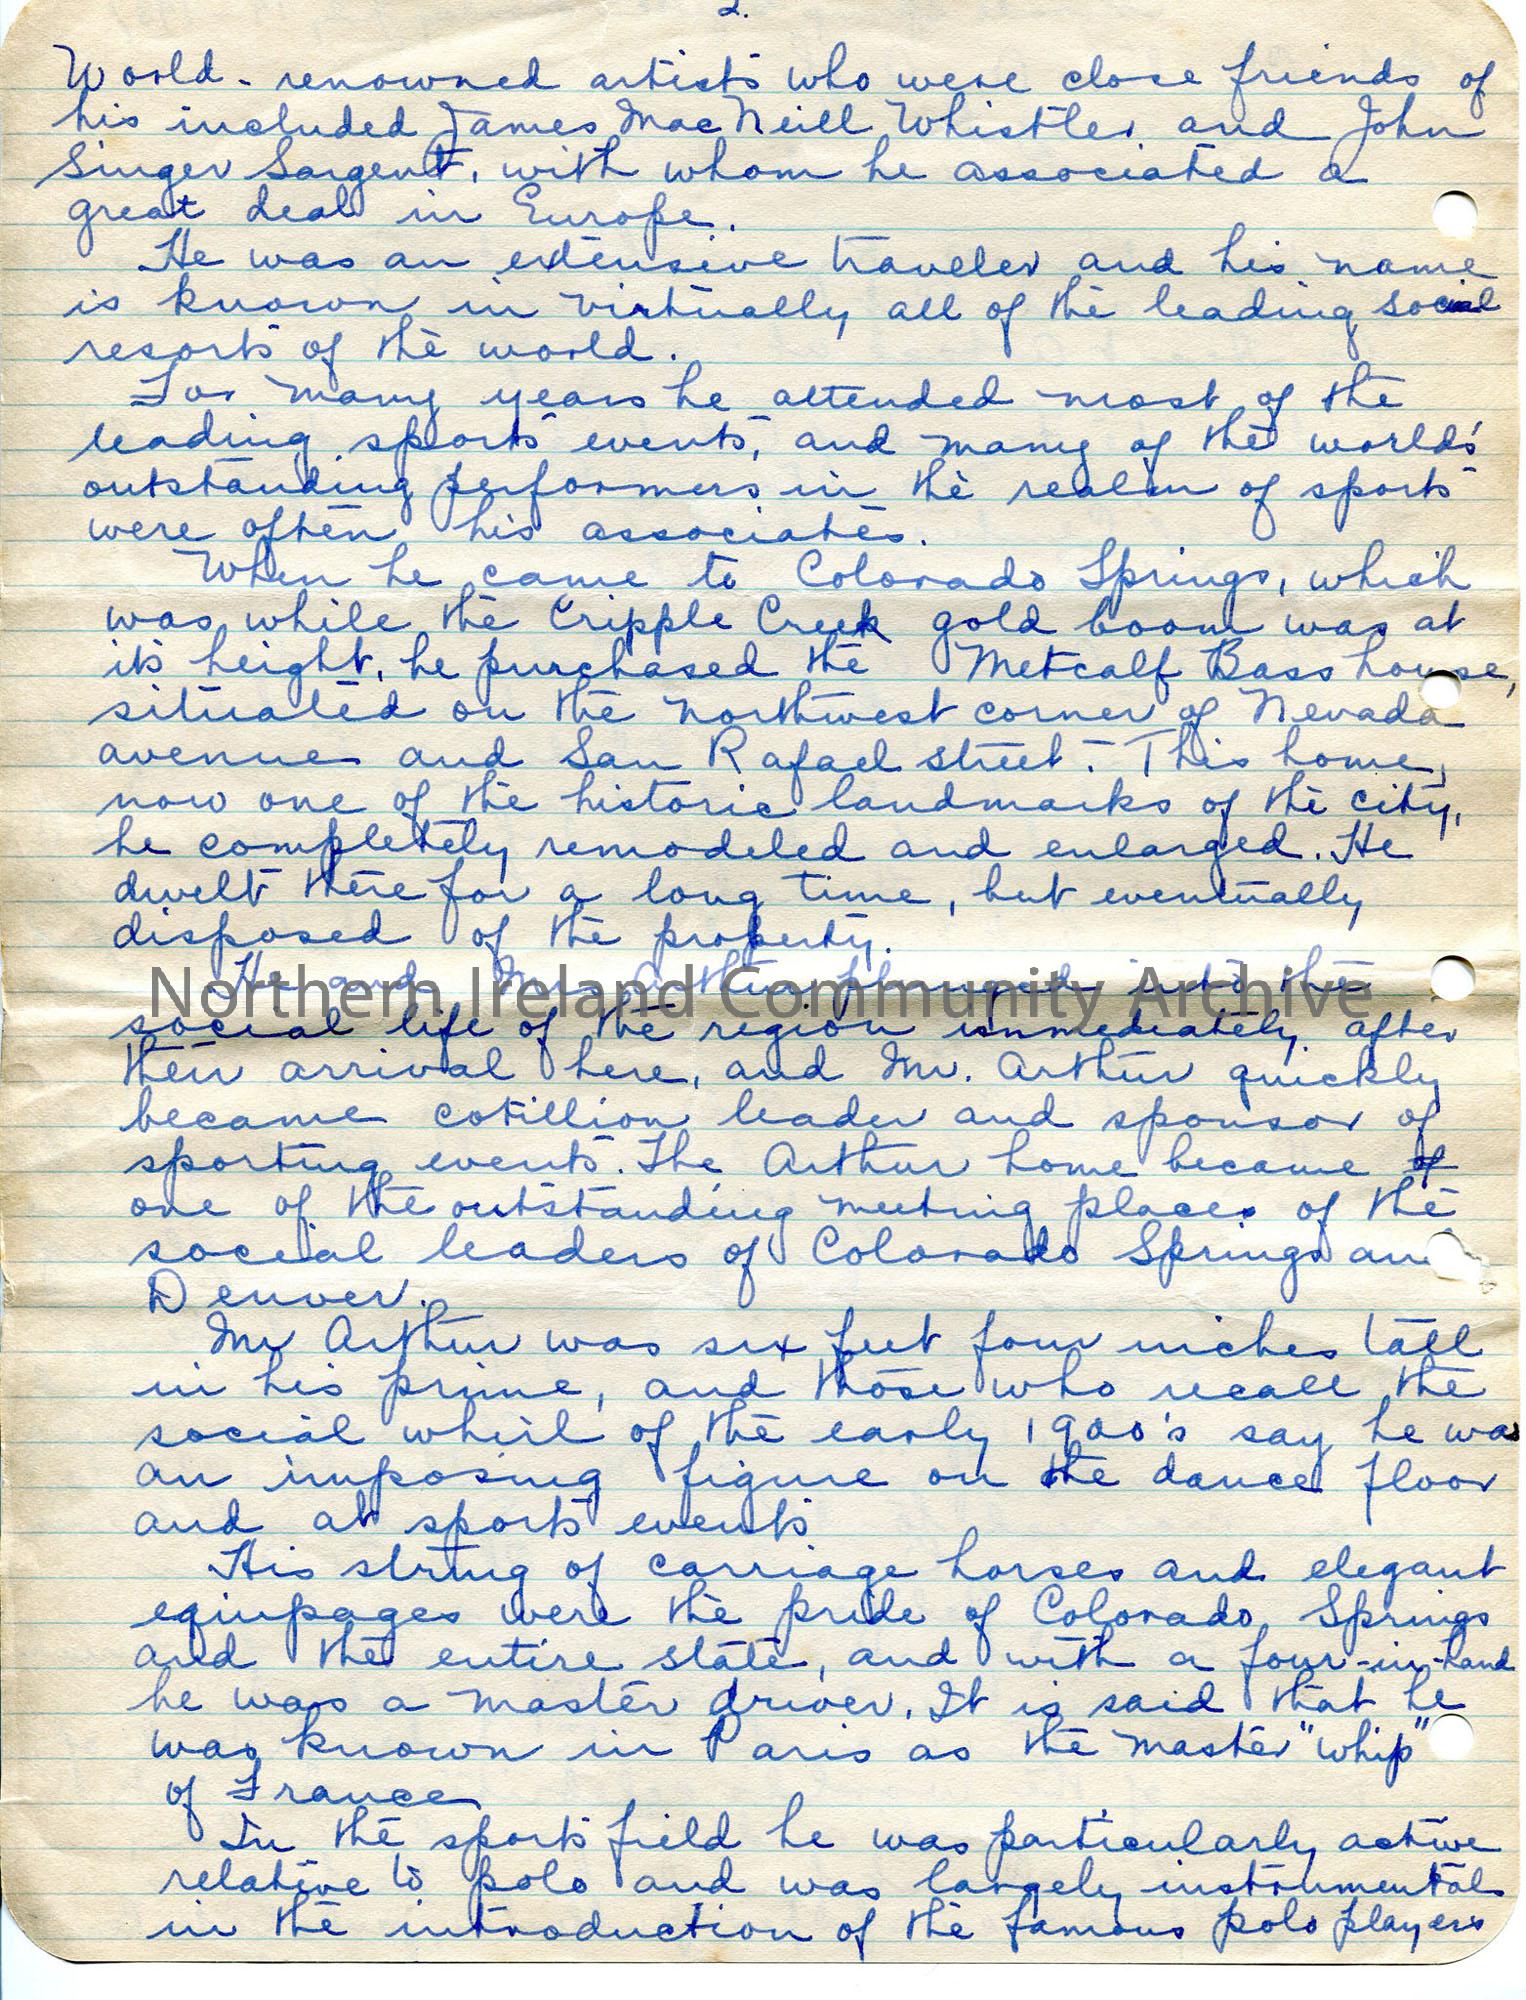 2.
World-renowned artists who were close friends of
his included James MacNeill Whistler and John
Singer Sargent, with whom he associated a
great deal in Europe.
He was an extensive traveler and his name
is known in virtually all of the leading social
resorts of the world.
For many years he attended most of the
leading sports events, and many of the worlds'
outstanding performers in the realm of sports
were often his associates.
When he came to Colorado Springs, which
was while the Cripple Creek gold boom was at
its height, he purchased the Metcalf Bass house,
situated on the northwest corner of Nevada
avenue and San Rafael street. This home,
now one of the historic landmarks of the city,
he completely remodeled and enlarged. He
dwelt there for a long time, but eventually
disposed of the property.
He and Mrs. Arthur plunged into the
Northern Ireland Community Archive
social life of the region immediately after
their arrival here, and Mr. Arthur quickly
became cotillion leader and sponsor of
sporting events. The Arthur home became of
one of the outstanding meeting places of the
social leaders of Colorado Springs an
Denver.
Mr Arthur was six feet four inches tall
in his prime, and those who recall the
social whirl of the early 1900's say he was
an imposing figure on the dance floor
and at sports events
His string of carriage horses and elegant
equipages were the pride of Colorado Springs
and the entire state, and with a four-in-hand
he was a master driver. It is said that he
was known in Paris as the master "whip"
of France
In the sports field he was particularly active
relative to polo and was largely instrumental
in the introduction of the famous polo players